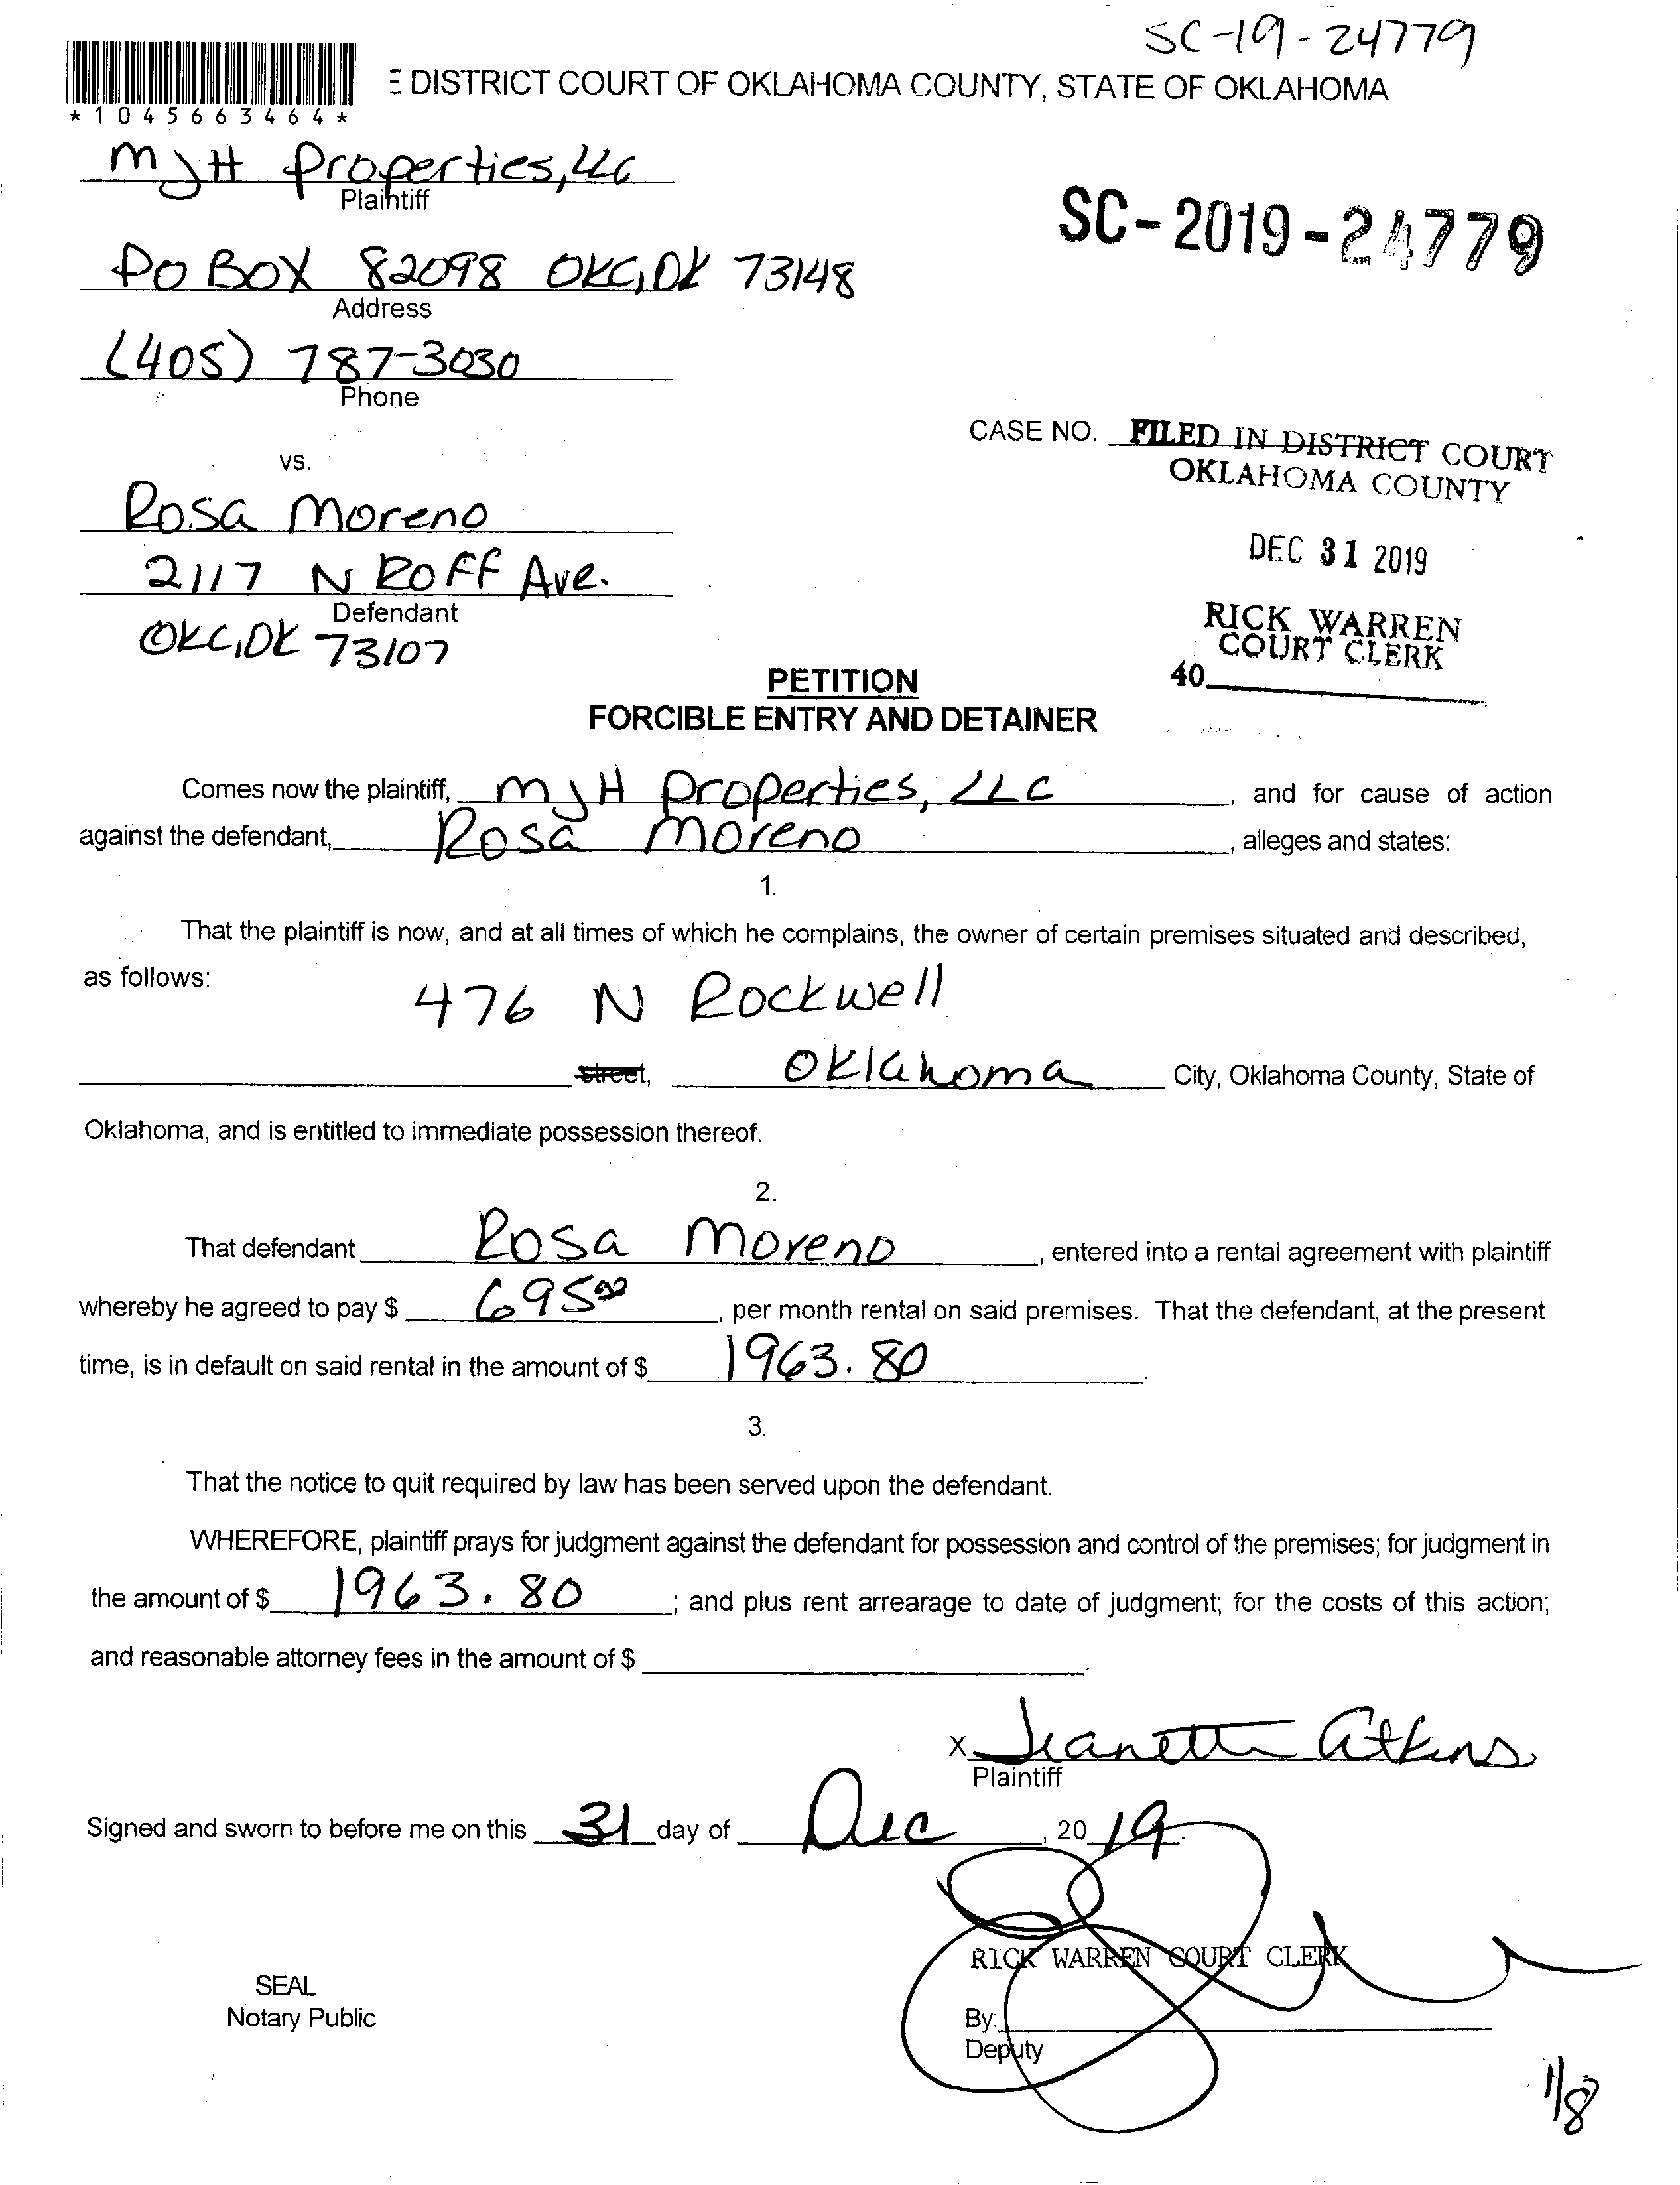 SC-19-24779
E DISTRICT COURT OF OKLAHOMA COUNTY, STATE OF OKLAHOMA
*1045663464*
MJH Properties, LLC
Plaintiff
SC-2019-24779
PO BOX 82098 OKC, OK 73148
Address
(405) 787-3030
Phone
CASE NO. FILED IN DISTRICT COURT
OKLAHOMA COUNTY
vs.
Rosa Moreno
DEC 31 2019
2117 N ROFF Ave.
Defendant
RICK WARREN
COURT CLERK
OKC, OK 73107
40
PETITION
FORCIBLE ENTRY AND DETAINER
Comes now the plaintiff, MJH Properties, LLC, and for cause of action
against the defendant, Rosa Moreno, alleges and states:
1.
That the plaintiff is now, and at all times of which he complains, the owner of certain premises situated and described,
as follows:
476 N Rockwell
street, Oklahoma City, Oklahoma County, State of
Oklahoma, and is entitled to immediate possession thereof.
2.
That defendant Rosa Moreno, entered into a rental agreement with plaintiff
whereby he agreed to pay $ 695.00, per month rental on said premises. That the defendant, at the present
time, is in default on said rental in the amount of $ 1963.80.
3.
That the notice to quit required by law has been served upon the defendant.
WHEREFORE, plaintiff prays for judgment against the defendant for possession and control of the premises; for judgment in
the amount of $ 1963.80; and plus rent arrearage to date of judgment; for the costs of this action;
and reasonable attorney fees in the amount of $
X Jeanette Atkins
Plaintiff
Signed and sworn to before me on this 31 day of Dec, 2019.
RICK WARREN COURT CLERK
SEAL
Notary Public
By:
Deputy
1/8